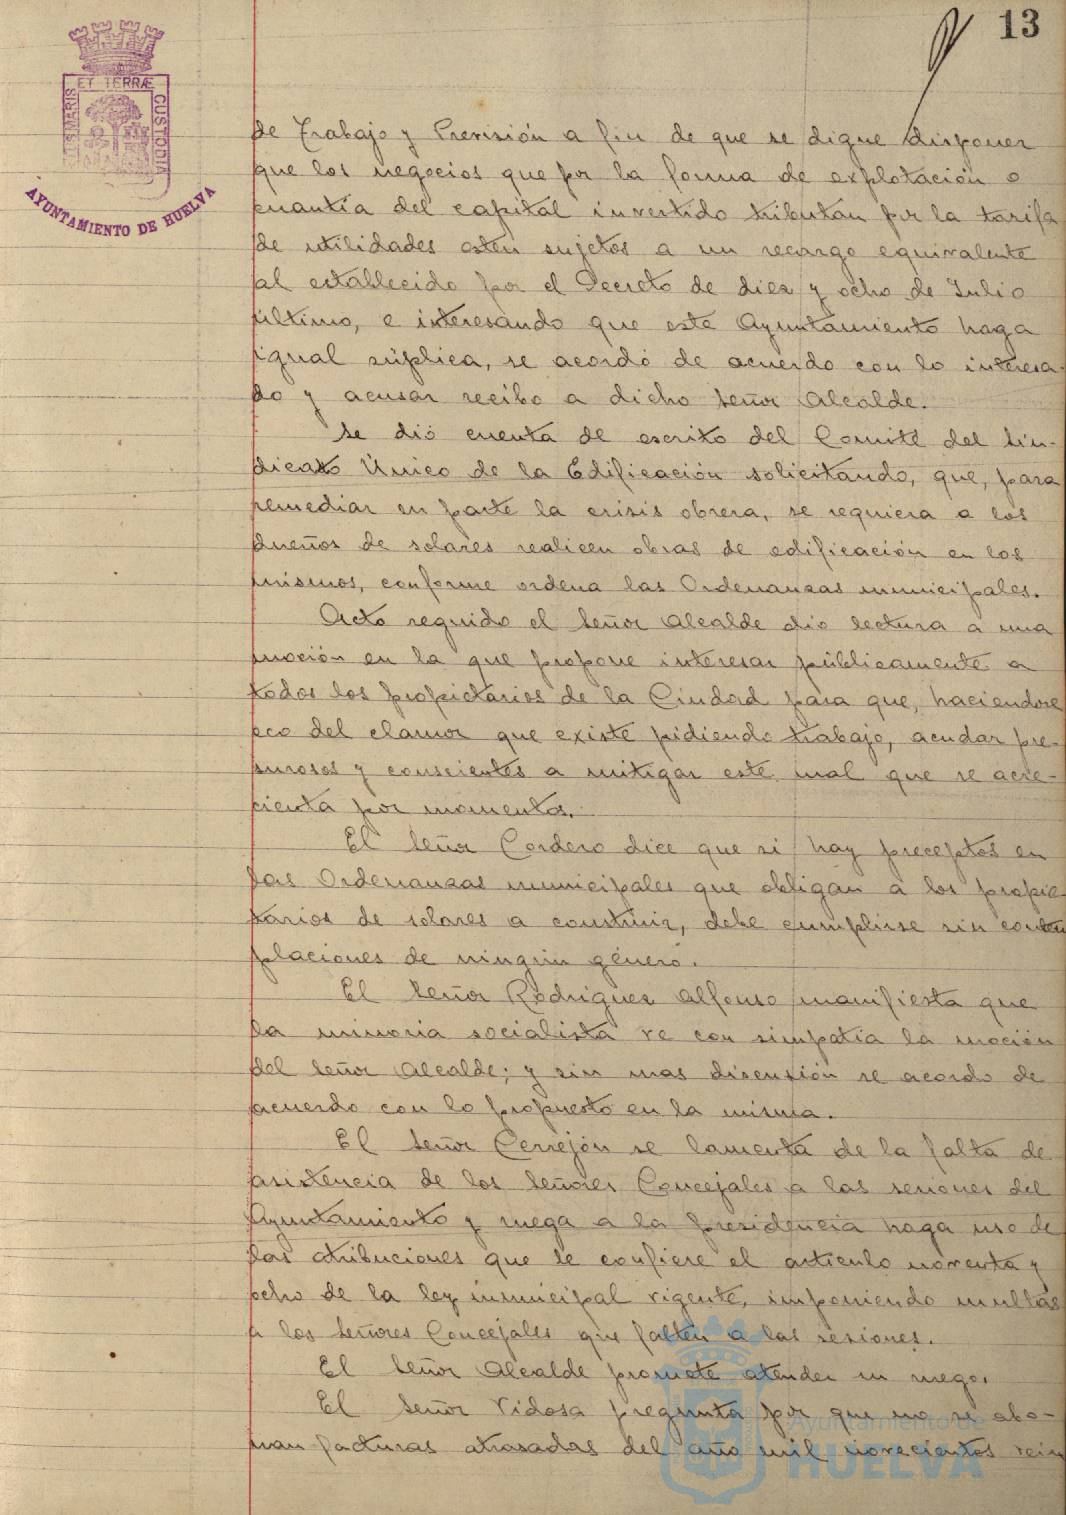 13
PORTUS MARIS ET TERRÆ CUSTODIA
AYUNTAMIENTO DE HUELVA
de Trabajo y Previsión a fin de que se digne disponer
que los negocios que por la forma de explotación o
cuantía del capital invertido tributan por la tarifa
de utilidades esten sujetos a un recargo equivalente
al establecido por el Decreto de diez y ocho de Julio
último, e interesando que este Ayuntamiento haga
igual súplica, se acordó de acuerdo con lo interesa-
do y acusar recibo a dicho señor Alcalde.
Se dió cuenta de escrito del Comité del Sin-
dicato Único de la Edificación solicitando, que, para
remediar en parte la crisis obrera, se requiera a los
dueños de solares realicen obras de edificación en los
mismos, conforme ordena las Ordenanzas municipales.
Acto seguido el Señor Alcalde dio lectura a una
moción en la que propone interesar públicamente a
todos los propietarios de la Ciudad para que, haciendose
eco del clamor que existe pidiendo trabajo, acudar pre-
surosos y conscientes a mitigar este mal que se acre-
cienta por momentos.
El Señor Cordero dice que si hay preceptos en
las Ordenanzas municipales que obligan a los propie-
tarios de solares a construir, debe cumplirse sin contem
placiones de ningún género.
El Señor Rodriguez Alfonso manifiesta que
la minoria socialista ve con simpatía la moción
del Señor Alcalde; y sin mas discusión se acordo de
acuerdo con lo propuesto en la misma.
El Señor Cerrejón se lamenta de la falta de
asistencia de los Señores Concejales a las sesiones del
Ayuntamiento y ruega a la presidencia haga uso de
las atribuciones que le confiere el artículo noventa y
ocho de la ley municipal vigente, imponiendo multas
a los Señores Concejales que falten a las sesiones.
El Señor Alcalde promete atender su ruego.
El Señor Vidosa pregunta por que no se abo-
nan facturas atrasadas del año mil novecientos vein
Ayuntamiento de
HUELVA